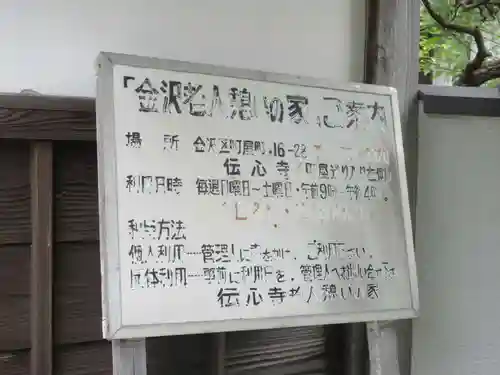 「金沢老人憩いの家」ご案内
場 所 金沢区町屋町・16-28
伝心寺
利用日時 毎週 曜日〜土曜日・午前9時〜午 4
利用方法
個人利用…管理人に をかけ、ご利用 さい。
団体利用…事前に利用日を、管理人へ
伝心寺老人憩いの家